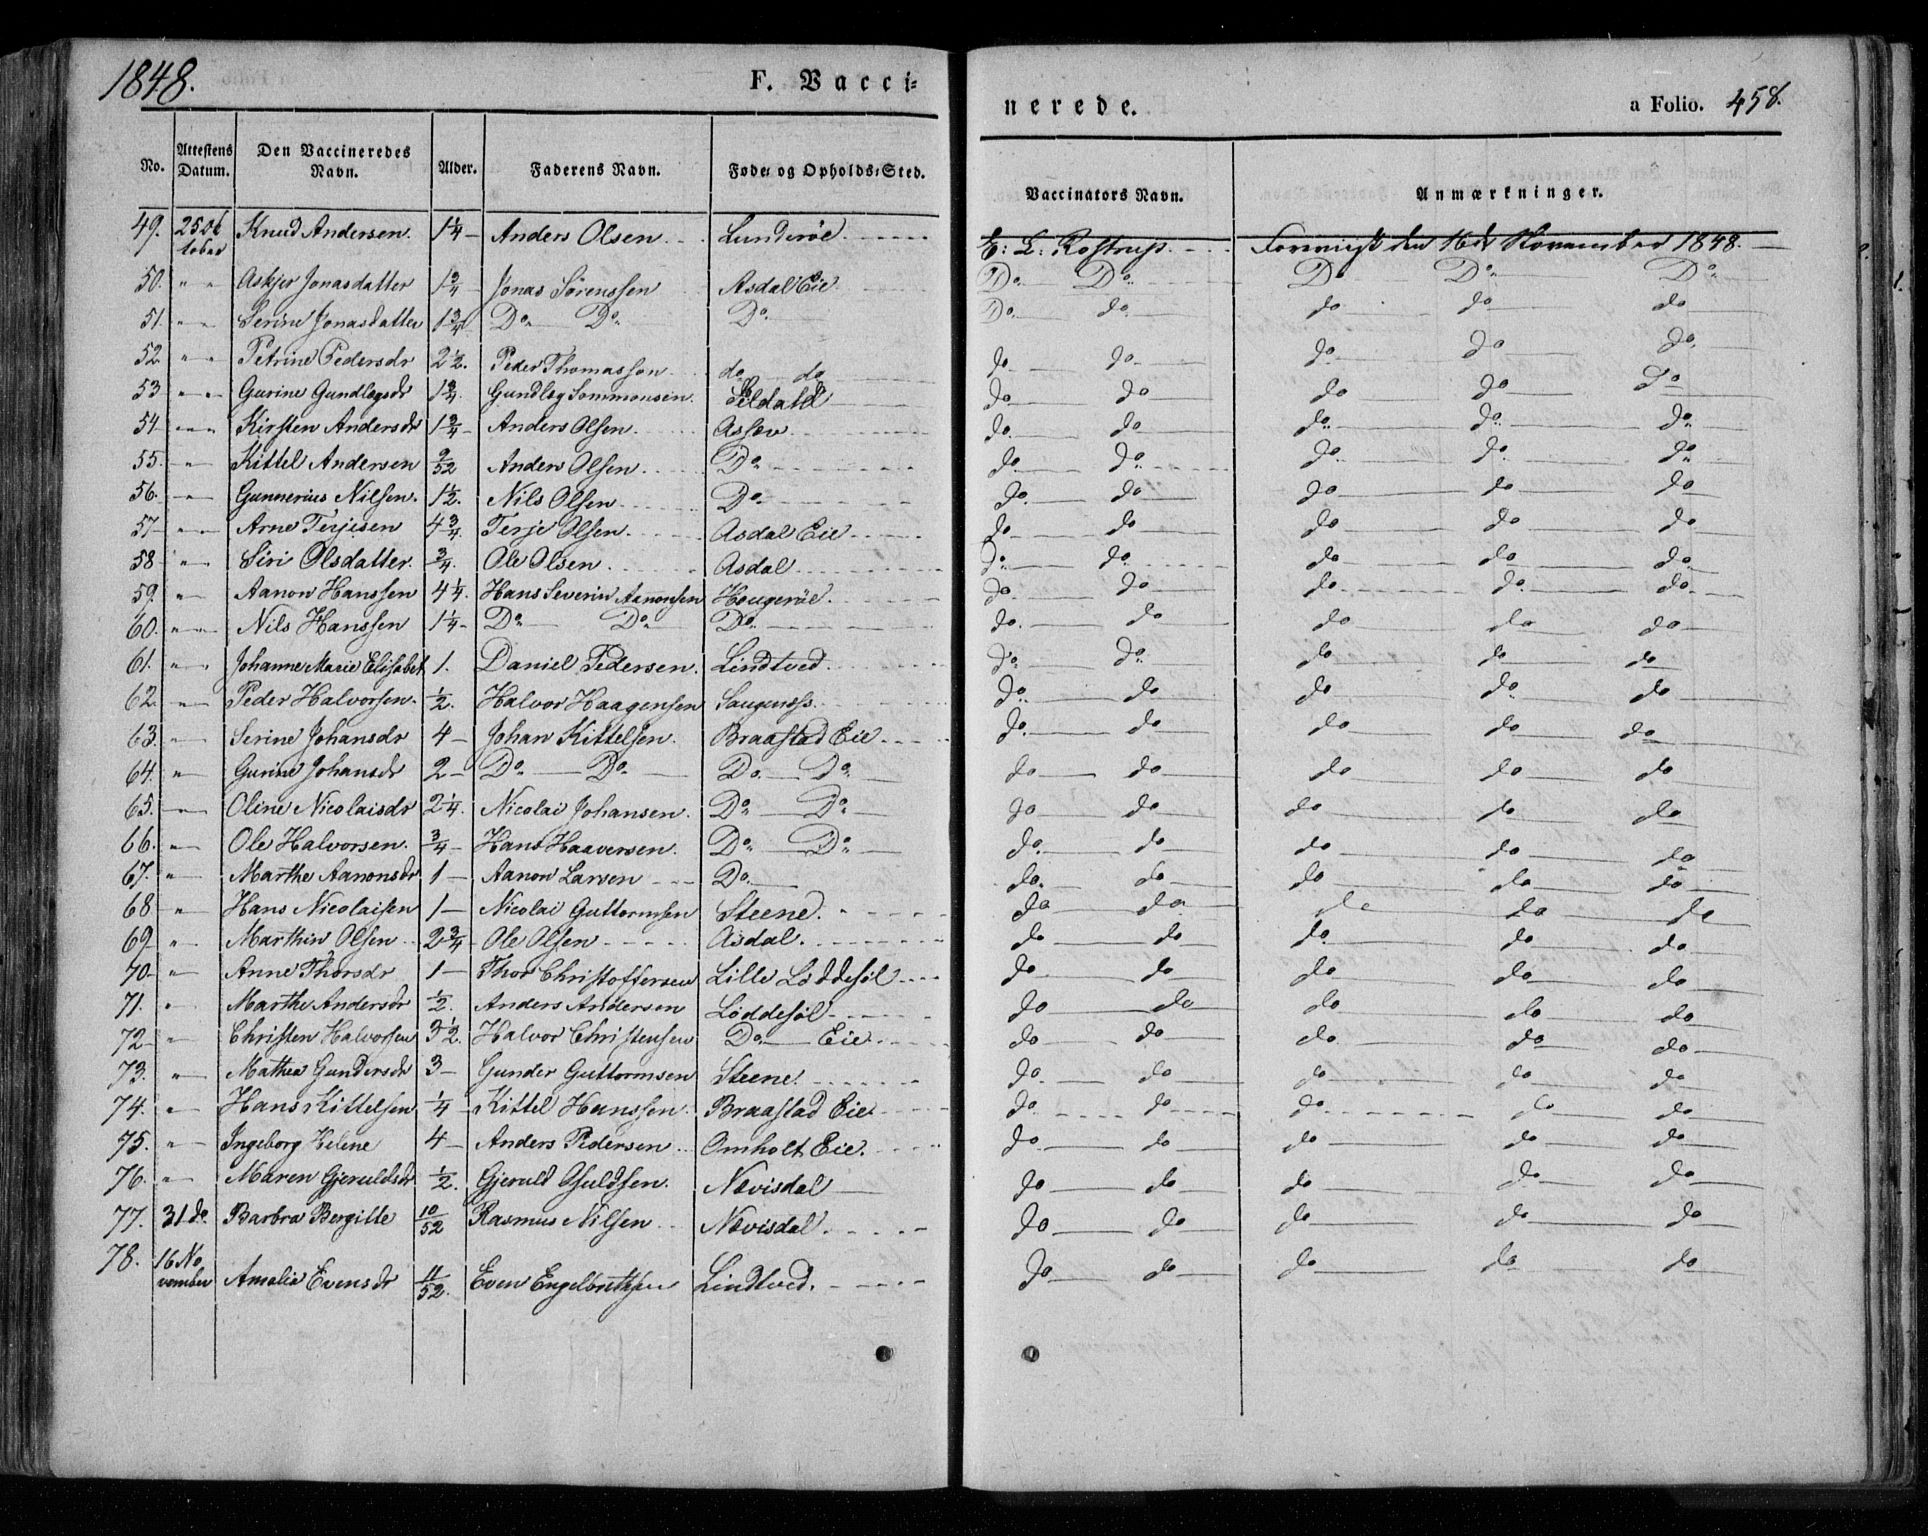 1848. F. Vacci=
nerede. a Folio. 458.
No. Attestens Datum. Den Vaccineredes Navn. Alder. Faderens Navn. Føde= og Opholds=Sted. Vaccinators Navn. Anmærkninger.
49. 25 Oktober Knud Andersen. 1 1/4 - Anders Olsen Lunderöe E: L: Rostrup. den 16de November 1848.
50. " " Askjer Jonasdatter 1 3/4 Jonas Sörenssen Asdal Eie Do Do Do Do Do
51. " " Serine Jonasdatter 1 3/4 Do Do Do Do do do do do
52. " " Petrine Pedersdr 2 1/2. Peder Thomasson do do do do do do do
53 " " Gurine Gundlegsdr 1 3/4. Gundleg Sommonsen. do do do do do
54 " " Kirsten Andersdr 1 3/4 - Anders Olsen. Assev do do do do do
55. " Kittel Andersen 9/52 Anders Olsen. Do do do do do do
56. " Gunnerius Nilsen. 1 1/2. Nils Olsen Do do do do do do
57 " " Arne Terjesen 4 3/4. Terje Olsen. Asdal Eie do do do do do
58 " Siri Olsdatter. 3/4. Ole Olsen Asdal do do do do do
59. " Aanon Hanssen 4 1/4. Hans Severin Aanonsen Hougeröe. do do do do do
60. " " Nils Hanssen 1 1/4 - Do Do Do do do do do do
61. " " Johanne Marie Elisabet 1. Daniel Pedersen. Lindtved. do do do do do
62. " Peder Halvorsen. 1/2. Halvor Haagensen Saugenæss. do do do do do
63. " Serine Johansdr 4 - Johan Kittelsen. Braastad Eie do do do do do
64. " Gurine Johansdr 2 - Do Do Do Do do do do do do
65. " Oline Nicolaisdr 2 1/4. Nicolai Johansen. Do Do do do do do do
66. " Ole Halvorsen. 3/4 - Hans Haaversen. Do Do do do do do do
67. " Marthe Aanonsdr 1 - Aanon Larsen Do do do do do do
68 " Hans Nicolaisen 1 - Nicolai Guttormsen Steene. do do do do do
69. " Marthin Olsen 2 3/4 - Ole Olsen Asdal. do do do do do
70. " Anne Thorsdr 1 - Thor Christoffersen Lille Löddesöl do do do do do
71. " Marthe Andersdr 1/2. Anders Andersen Löddesöl do do do do do
72 " Christen Halvorsen 3 1/2. Halvor Christensen Do Eie do do do do do
73. " Mathea Gundersdr 3 - Gunder Guttormsen Steene. do do do do do
74. " Hans Kittelsen 1/4 - Kittel Hanssen Braastad Eie do do do do do
75. " Ingeborg Helene 4 - Anders Pedersen Omholt Eie. do do do do do
76. " Maren Gjeruldsdr 1/2. Gjeruld Osuldsen. Nævisdal do do do do do
77. 31 do. Barbra Bergitte 10/52 Rasmus Nilsen Nævisdal. do do do do do
78. 16 November Amalia Evensdr 11/52. Even Engelbrethsen Lindtved. do do do do do